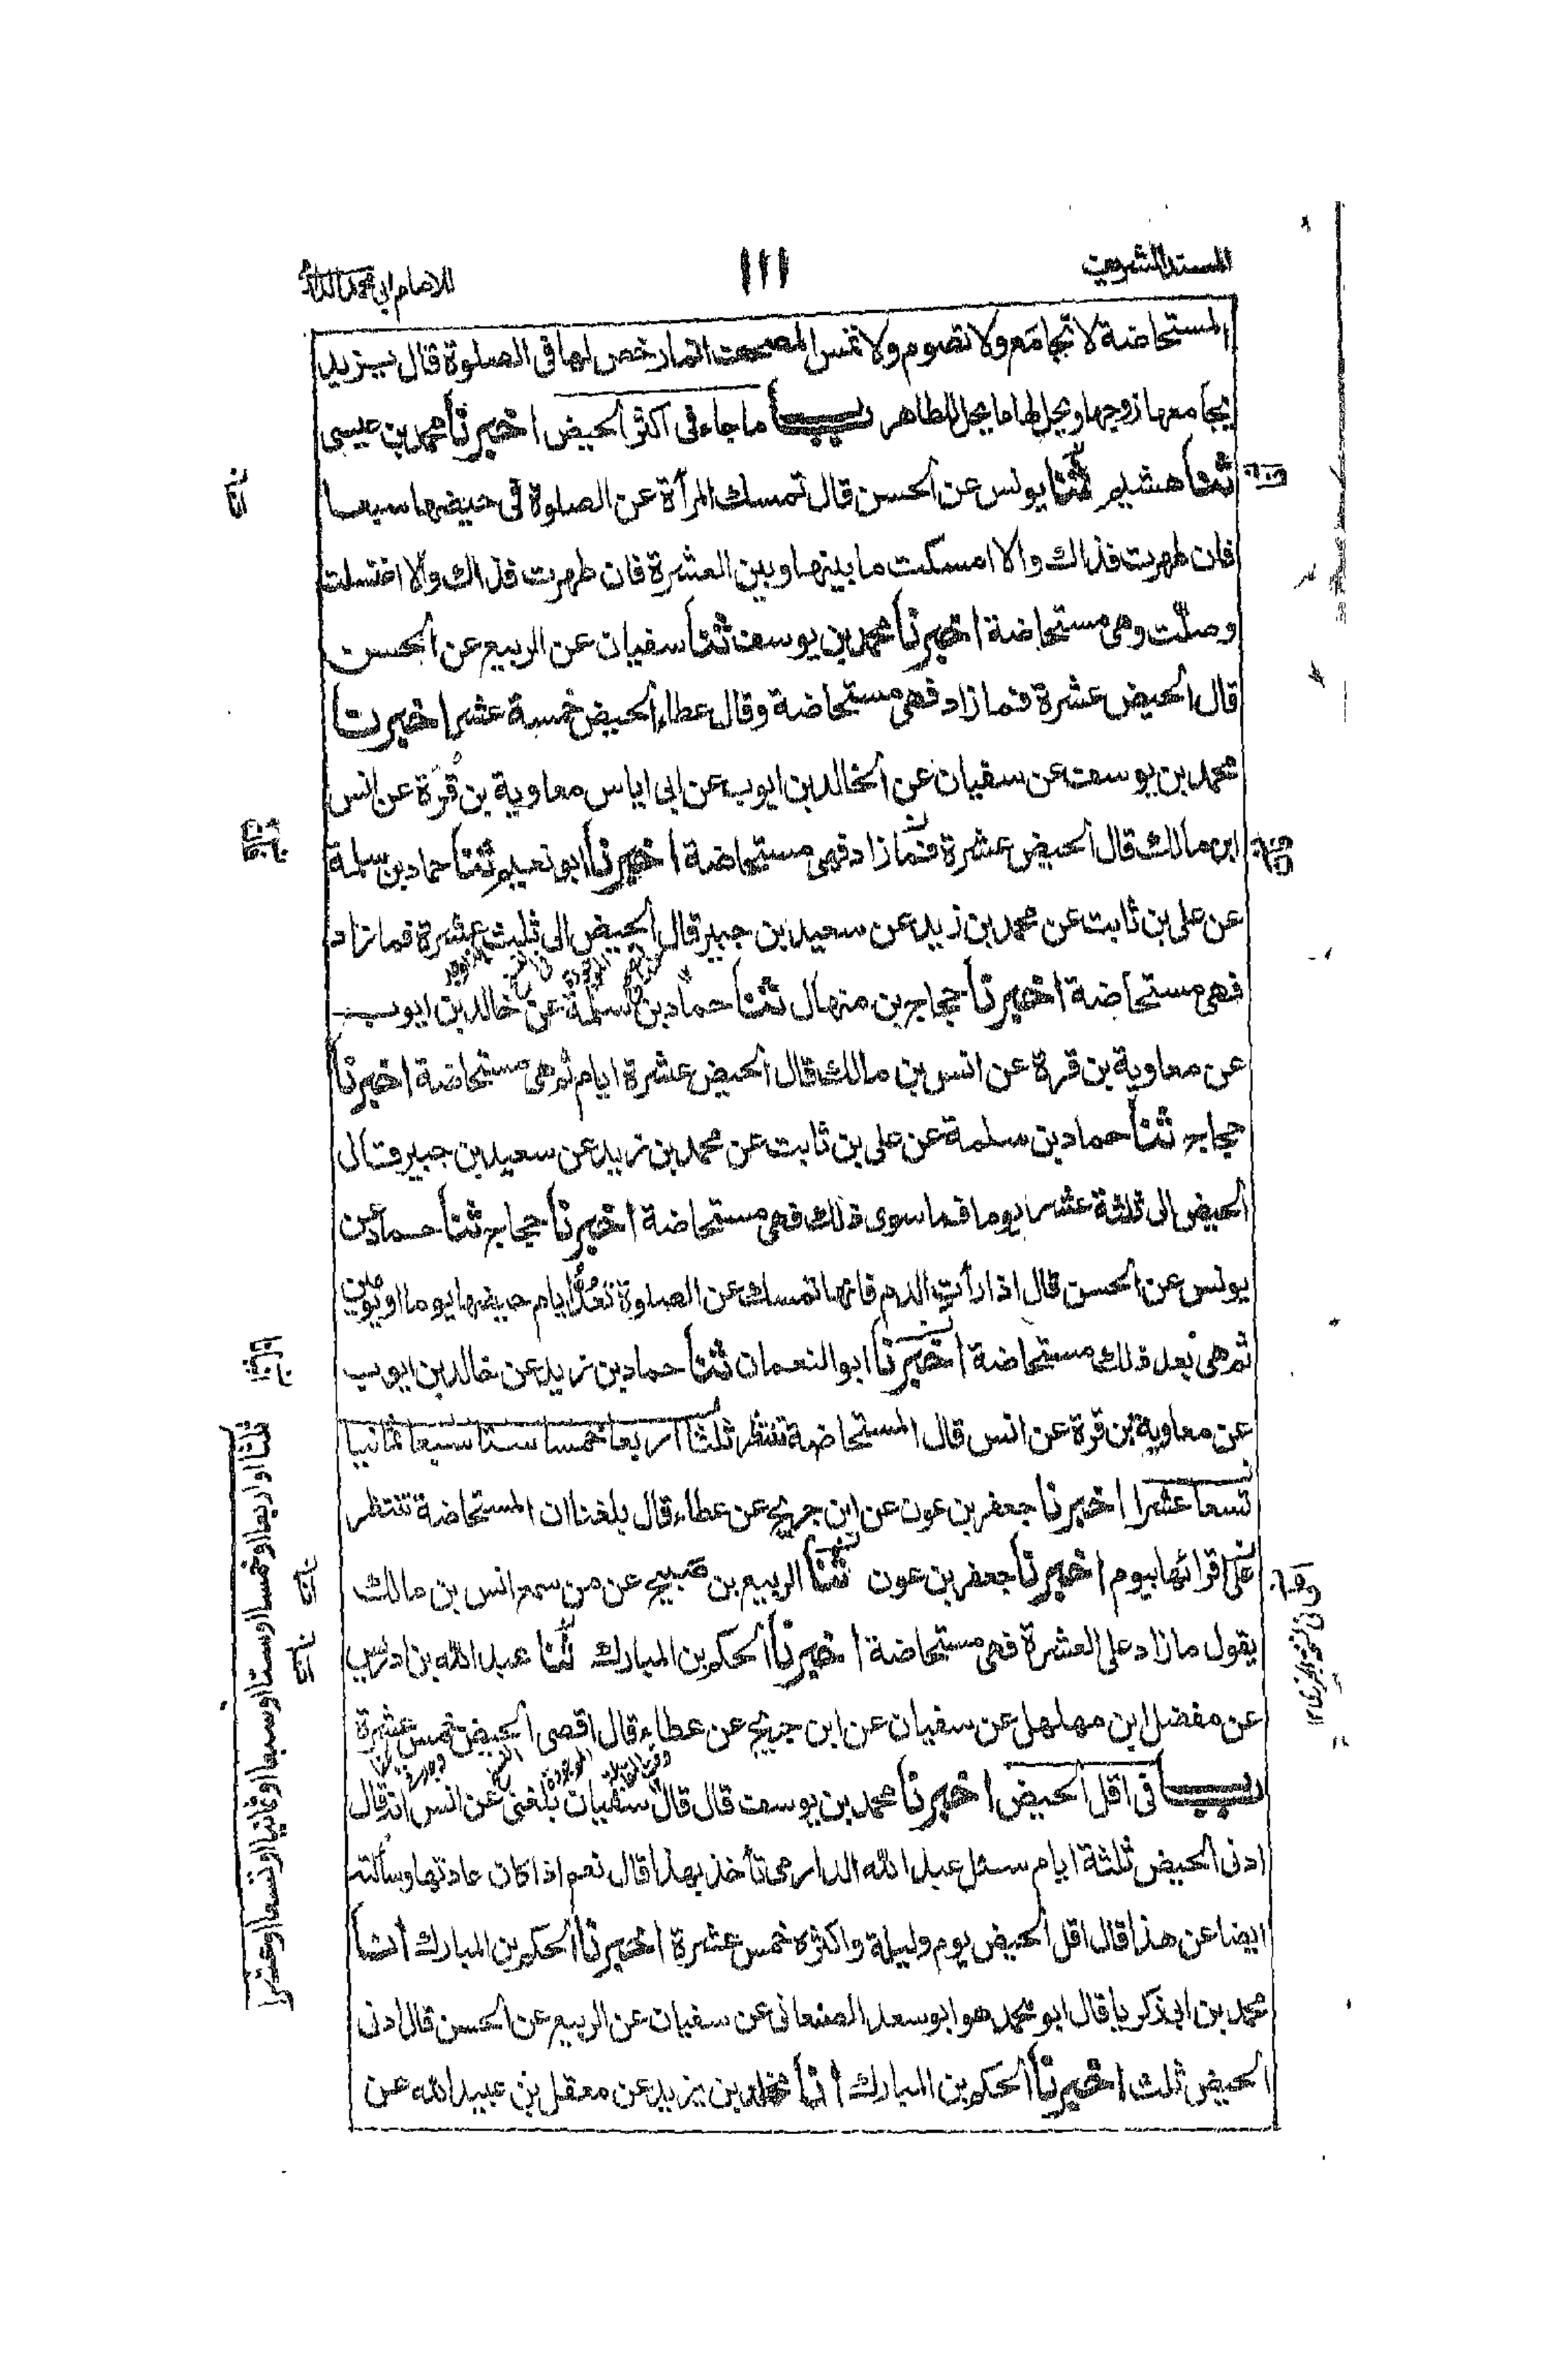 المسند الشريف
١١١
للامام ابي محمد الدارمي
المستحاضة لا تجامَع ولا تصوم ولا تمس المصحف انما رخص لها في الصلوة قال يزيد
يجامعها زوجها ويحل لها ما يحل للطاهر باب ما جاء في اكثر الحيض اخبرنا محمد بن عيسى
ثنا هشيم ثنا يونس عن الحسن قال تمسك المرأة عن الصلوة في حيضها سبعا
فان طهرت فذاك والا امسكت ما بينها وبين العشرة فان طهرت فذاك والا اغتسلت
وصلّت وهي مستحاضة اخبرنا محمد بن يوسف ثنا سفيان عن الربيع عن الحسن
قال الحيض عشرة فما زاد فهي مستحاضة وقال عطاء الحيض خمسة عشر اخبرنا
محمد بن يوسف عن سفيان عن الخالد بن ايوب عن ابي اياس معاوية بن قُرَة عن انس
ابن مالك قال الحيض عشرة فما زاد فهي مستحاضة اخبرنا ابو نعيم ثنا حماد بن سلمة
عن علي بن ثابت عن محمد بن زيد عن سعيد بن جبير قال الحيض الى ثلث عشرة فما زاد
فهي مستحاضة اخبرنا حجاج بن منهال ثنا حماد بن سلمة عن خالد بن ايوب
عن معاوية بن قرة عن انس بن مالك قال الحيض عشرة ايام ثم هي مستحاضة اخبرنا
حجاج ثنا حماد بن سلمة عن علي بن ثابت عن محمد بن زيد عن سعيد بن جبير قال
الحيض الى ثلثة عشر يوما فما سوى ذلك فهي مستحاضة اخبرنا حجاج ثنا حماد عن
يونس عن الحسن قال اذا رأت الدم فانها تمسك عن الصلوة تعدّ ايام حيضها يوما او يومين
ثم هي بعد ذلك مستحاضة اخبرنا ابو النعمان ثنا حماد بن زيد عن خالد بن ايوب
عن معاوية بن قرة عن انس قال المستحاضة تنتظر ثلثا اربعا خمسا ستا سبعا ثمانيا
تسعا عشرا اخبرنا جعفر بن عون عن ابن جريج عن عطاء قال بلغنا ان المستحاضة تنتظر
على اقرائها بيوم اخبرنا جعفر بن عون ثنا الربيع بن صبيح عن من سمع انس بن مالك
يقول ما زاد على العشرة فهي مستحاضة اخبرنا الحكم بن المبارك ثنا عبد الله بن ادريس
عن مفضل ابن مهلهل عن سفيان عن ابن جريج عن عطاء قال اقصى الحيض خمس عشرة
باب في اقل الحيض اخبرنا محمد بن يوسف قال قال سفيان بلغني عن انس انه قال
ادنى الحيض ثلثة ايام سئل عبد الله الدارمي تأخذ بهذا قال نعم اذا كان عادتها وسألته
ايضا عن هذا قال اقل الحيض يوم وليلة واكثره خمس عشرة اخبرنا الحكم بن المبارك انا
محمد بن ابي زكريا قال ابو محمد هو ابو سعد الصنعاني عن سفيان عن الربيع عن الحسن قال ادنى
الحيض ثلث اخبرنا الحكم بن المبارك انا مخلد بن يزيد عن معقل بن عبيد الله عن
ثلثا او اربعا او خمسا او ستا او سبعا او ثمانيا او تسعا او عشرا